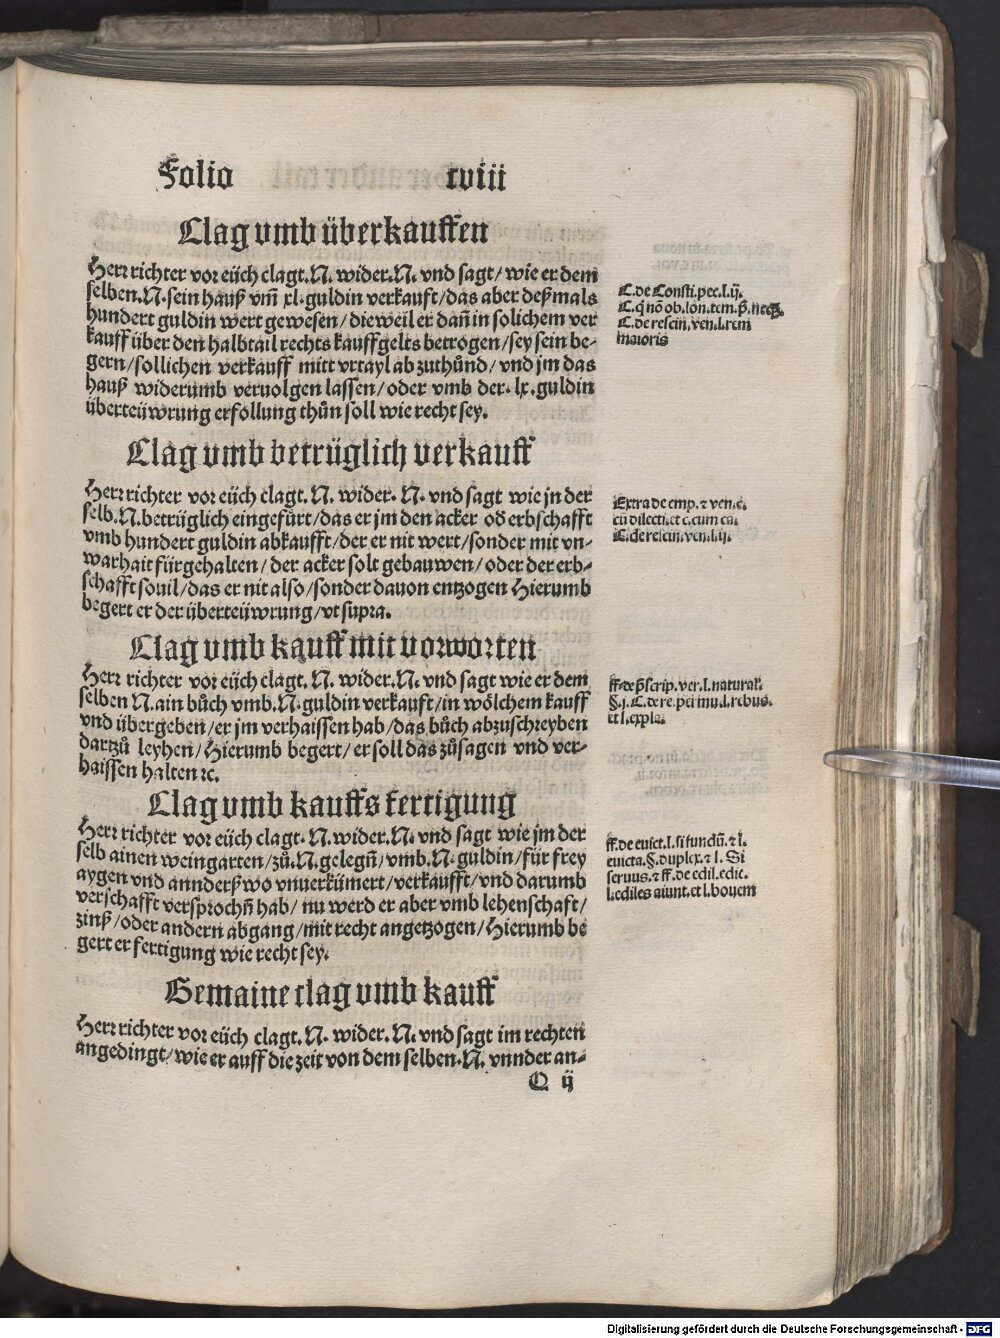 Folio xviii
Clag vmb überkauffen
Herr richter vor eüch clagt. N. wider. N. vnd sagt/ wie er dem
selben. N. sein hauß vm̄ xl. guldin verkauft/ das aber deßmals
hundert guldin wert gewesen/ dieweil er dañ in solichem ver
kauff über den halbtail rechts kauffgelts betrogen/ sey sein be-
gern/ sollichen verkauff mitt vrtayl ab zuthůnd/ vnd jm das
hauß widerumb veruolgen lassen/ oder vmb der. lx. guldin
überteüwrung erfollung thůn soll wie recht sey.
C. de Consti. pec. l. ij.
C. q̄ nō ob. lon. tem. p̄.
C. de rescin. ven. l. rem
maioris
Clag vmb betrüglich verkauff
Herr richter vor eüch clagt. N. wider. N. vnd sagt wie jn der
selb. N. betrüglich eingefürt/ das er jm den acker od erbschafft
vmb hundert guldin abkaufft/ der er nit wert/ sonder mit vn-
warhait fürgehalten/ der acker solt gebauwen/ oder der erb-
schafft souil/ das er nit also/ sonder dauon entzogen Hierumb
begert er der überteüwrung/ vt supra.
Extra de emp. ⁊ ven. c.
cū dilecti. et c. cum cā.
C. de rescin. ven. l. ij.
Clag vmb kauff mit vorworten
Herr richter vor eüch clagt. N. wider. N. vnd sagt wie er dem
selben N. ain bůch vmb. N. guldin verkauft/ in wölchem kauff
vnd übergeben/ er jm verhaissen hab/ das bůch abzuschreyben
dartzů leyhen/ Hierumb begert/ er soll das zůsagen vnd ver-
haissen halten ⁊c.
ff. de p̄scrip. ver. l. natural.
§. j. C. de re. per mu. l. rebus.
et l. expla.
Clag vmb kauffs fertigung
Herr richter vor eüch clagt. N. wider. N. vnd sagt wie jm der
selb ainen weingarten/ zů. N. gelegñ/ vmb. N. guldin/ für frey
aygen vnd annderßwo vnuerkümert/ verkaufft/ vnd darumb
verschafft versprochñ hab/ nu werd er aber vmb lehenschaft/
zinß/ oder andern abgang/ mit recht angetzogen/ Hierumb be
gert er fertigung wie recht sey.
ff. de euict. l. si fundū. ⁊ l.
euicta. §. duplex. ⁊ l. Si
seruus. ⁊ ff. de edil. edic.
l. ediles aiunt. et l. bouem
Gemaine clag vmb kauff
Herr richter vor eüch clagt. N. wider. N. vnd sagt im rechten
angedingt/ wie er auff die zeit von dem selben. N. vnnder an-
Q ij
Digitalisierung gefördert durch die Deutsche Forschungsgemeinschaft - DFG